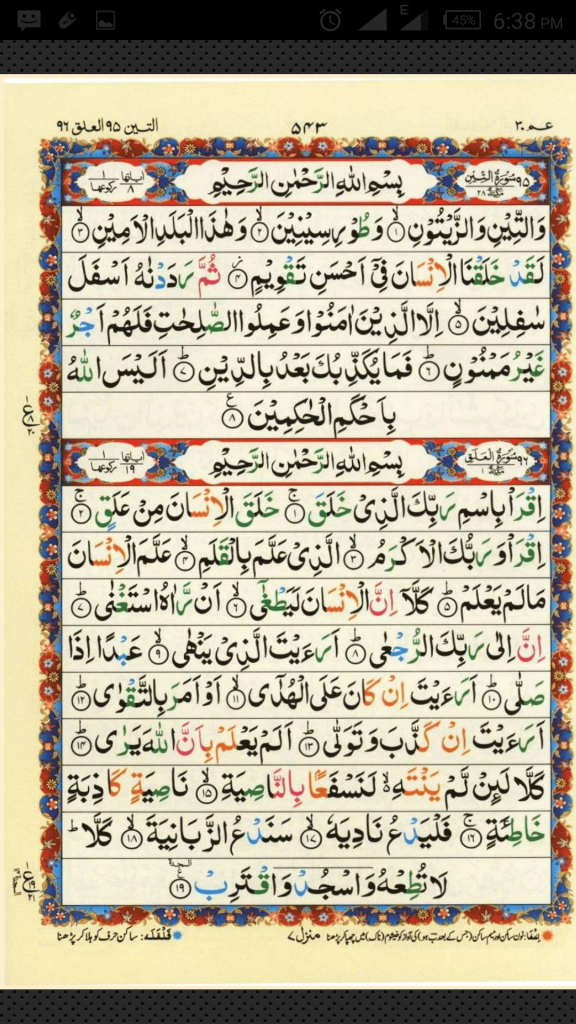 E 45% 6:38 PM
عم ٣٠ ٥٤٣ التين ٩٥ العلق ٩٦
٩٥ سُوْرَةُ التِّيْنِ مَكِّيَّةٌ ٢٨ بِسْمِ اللّٰهِ الرَّحْمٰنِ الرَّحِيْمِ اٰيَاتُهَا ٨ رُكُوْعُهَا ١
وَالتِّيْنِ وَالزَّيْتُوْنِ ۙ﴿۱﴾ وَطُوْرِ سِيْنِيْنَ ۙ﴿۲﴾ وَهٰذَا الْبَلَدِ الْاَمِيْنِ ۙ﴿۳﴾
لَقَدْ خَلَقْنَا الْاِنْسَانَ فِيْۤ اَحْسَنِ تَقْوِيْمٍ ۫﴿۴﴾ ثُمَّ رَدَدْنٰهُ اَسْفَلَ
سٰفِلِيْنَ ۙ﴿۵﴾ اِلَّا الَّذِيْنَ اٰمَنُوْا وَعَمِلُوا الصّٰلِحٰتِ فَلَهُمْ اَجْرٌ
غَيْرُ مَمْنُوْنٍ ؕ﴿۶﴾ فَمَا يُكَذِّبُكَ بَعْدُ بِالدِّيْنِ ؕ﴿۷﴾ اَلَيْسَ اللّٰهُ
بِاَحْكَمِ الْحٰكِمِيْنَ ﴿۸﴾
٩٦ سُوْرَةُ الْعَلَقِ مَكِّيَّةٌ ١ بِسْمِ اللّٰهِ الرَّحْمٰنِ الرَّحِيْمِ اٰيَاتُهَا ١٩ رُكُوْعُهَا ١
اِقْرَاْ بِاسْمِ رَبِّكَ الَّذِيْ خَلَقَ ۚ﴿۱﴾ خَلَقَ الْاِنْسَانَ مِنْ عَلَقٍ ۚ﴿۲﴾
اِقْرَاْ وَرَبُّكَ الْاَكْرَمُ ۙ﴿۳﴾ الَّذِيْ عَلَّمَ بِالْقَلَمِ ۙ﴿۴﴾ عَلَّمَ الْاِنْسَانَ
مَا لَمْ يَعْلَمْ ؕ﴿۵﴾ كَلَّاۤ اِنَّ الْاِنْسَانَ لَيَطْغٰٓى ۙ﴿۶﴾ اَنْ رَّاٰهُ اسْتَغْنٰى ؕ﴿۷﴾
اِنَّ اِلٰى رَبِّكَ الرُّجْعٰى ؕ﴿۸﴾ اَرَءَيْتَ الَّذِيْ يَنْهٰى ۙ﴿۹﴾ عَبْدًا اِذَا
صَلّٰى ؕ﴿۱۰﴾ اَرَءَيْتَ اِنْ كَانَ عَلَى الْهُدٰٓى ۙ﴿۱۱﴾ اَوْ اَمَرَ بِالتَّقْوٰى ؕ﴿۱۲﴾
اَرَءَيْتَ اِنْ كَذَّبَ وَتَوَلّٰى ؕ﴿۱۳﴾ اَلَمْ يَعْلَمْ بِاَنَّ اللّٰهَ يَرٰى ؕ﴿۱۴﴾
كَلَّا لَىِٕنْ لَّمْ يَنْتَهِ ۙ۬ لَنَسْفَعًۢا بِالنَّاصِيَةِ ۙ﴿۱۵﴾ نَاصِيَةٍ كَاذِبَةٍ
خَاطِئَةٍ ۚ﴿۱۶﴾ فَلْيَدْعُ نَادِيَهٗ ۙ﴿۱۷﴾ سَنَدْعُ الزَّبَانِيَةَ ۙ﴿۱۸﴾ كَلَّا ؕ
لَا تُطِعْهُ وَاسْجُدْ وَاقْتَرِبْ ﴿۱۹﴾
اِخفا: نون ساکن اور میم ساکن (جس کے بعد ب ہو) کی آواز کو خیشوم (ناک) میں چھپا کر پڑھنا منزل ٧ قلقله: ساکن حرف کو ہلا کر پڑھنا